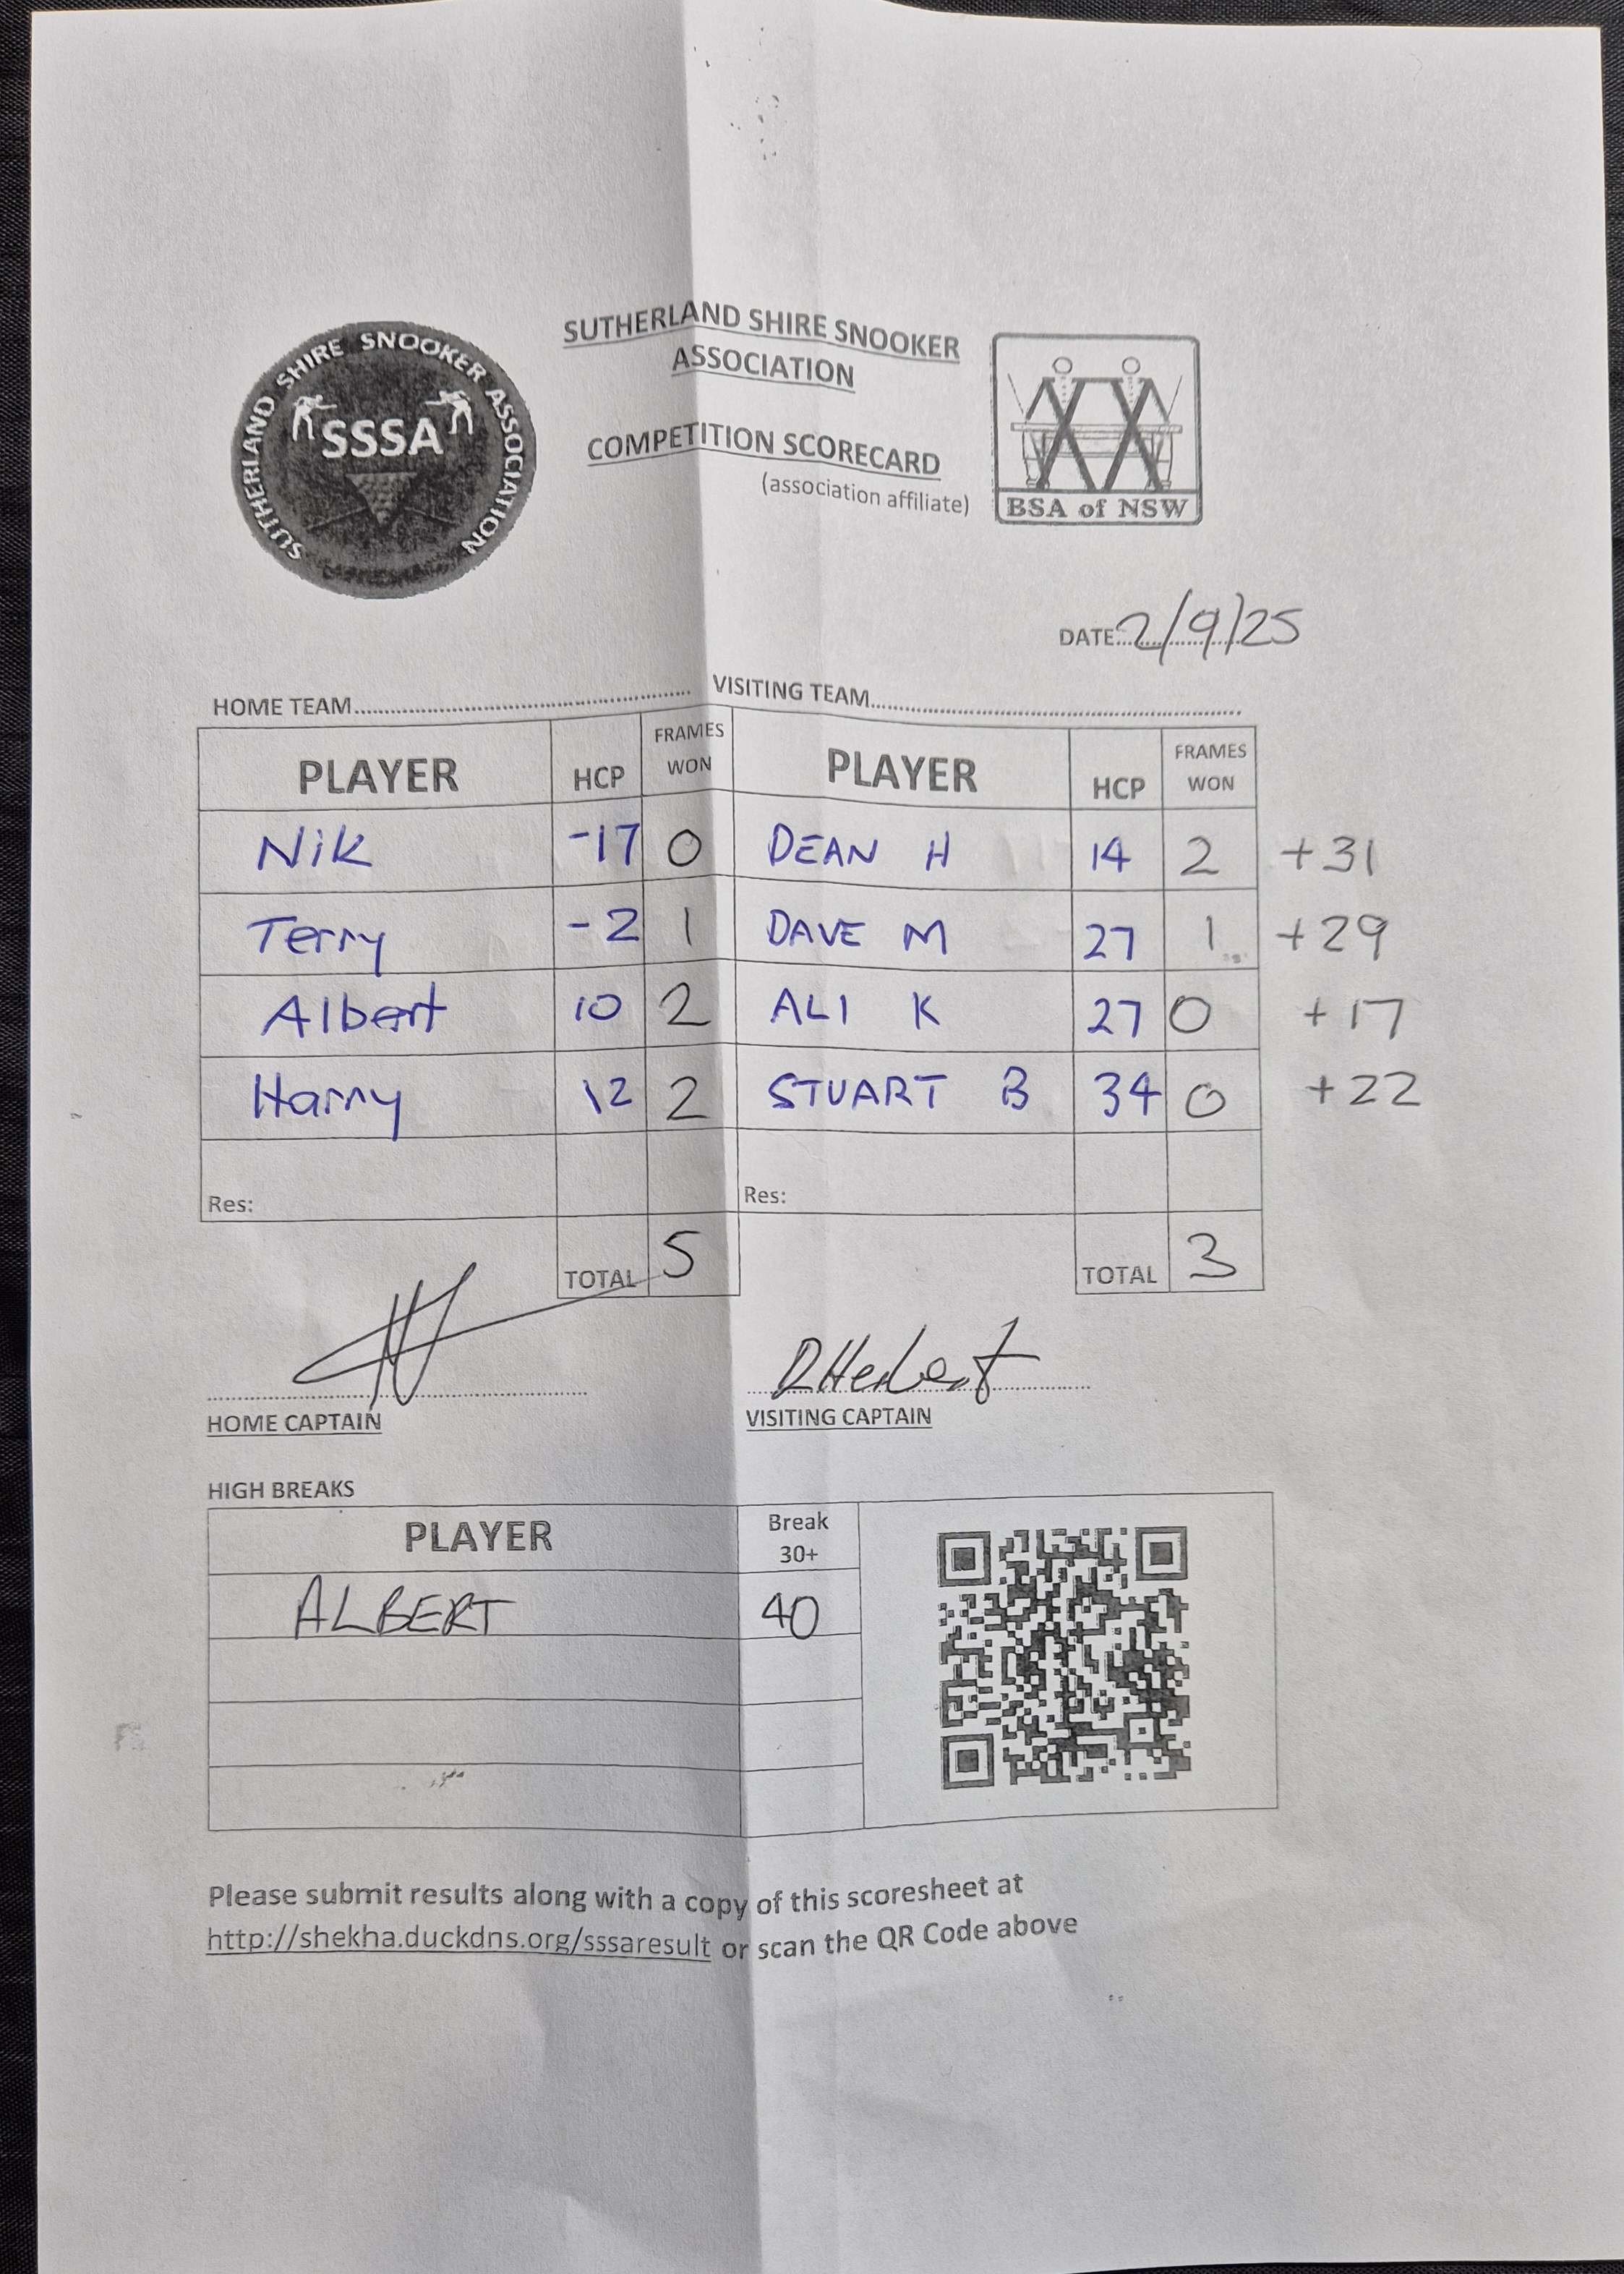 SUTHERLAND SHIRE SNOOKER ASSOCIATION
SSSA
SUTHERLAND SHIRE SNOOKER
ASSOCIATION
COMPETITION SCORECARD
(association affiliate)
BSA of NSW
DATE 2/9/25
HOME TEAM VISITING TEAM
PLAYER HCP FRAMES WON PLAYER HCP FRAMES WON
Nik -17 0 DEAN H 14 2 +31
Terry -2 1 DAVE M 27 1 +29
Albert 10 2 ALI K 27 0 +17
Harry 12 2 STUART B 34 0 +22
Res: Res:
TOTAL 5 TOTAL 3
DHerbert
HOME CAPTAIN VISITING CAPTAIN
HIGH BREAKS
PLAYER Break 30+
ALBERT 40
Please submit results along with a copy of this scoresheet at
http://shekha.duckdns.org/sssaresult or scan the QR Code above